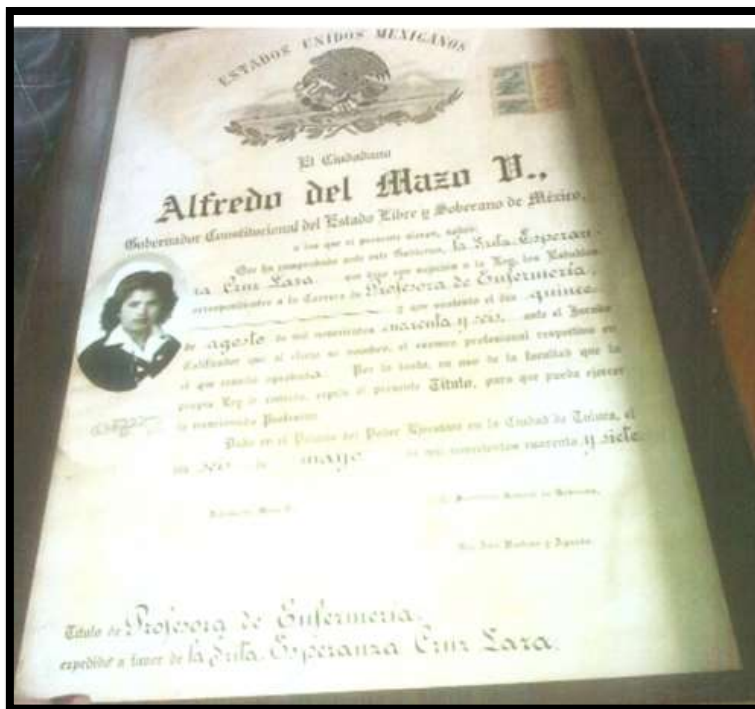 ESTADOS UNIDOS MEXICANOS
El Ciudadano
Alfredo del Mazo V.,
Gobernador Constitucional del Estado Libre y Soberano de México,
a los que el presente vieren, sabed:
Que ha comprobado ante este Gobierno, la Srita. Esperan-
za Cruz Lara que hizo con sujeción a la Ley, los Estudios
correspondientes a la Carrera de Profesora de Enfermería,
y que sustentó el día quince
de agosto de mil novecientos cuarenta y seis, ante el Jurado
Calificador que al efecto se nombró, el examen profesional respectivo en
el que resultó aprobada. Por lo tanto, en uso de la facultad que la
propia Ley le concede, expide el presente Título, para que pueda ejercer
la mencionada Profesión.
Dado en el Palacio del Poder Ejecutivo en la Ciudad de Toluca, el
día seis de mayo de mil novecientos cuarenta y siete.
Título de Profesora de Enfermería,
expedido a favor de la Srita. Esperanza Cruz Lara.